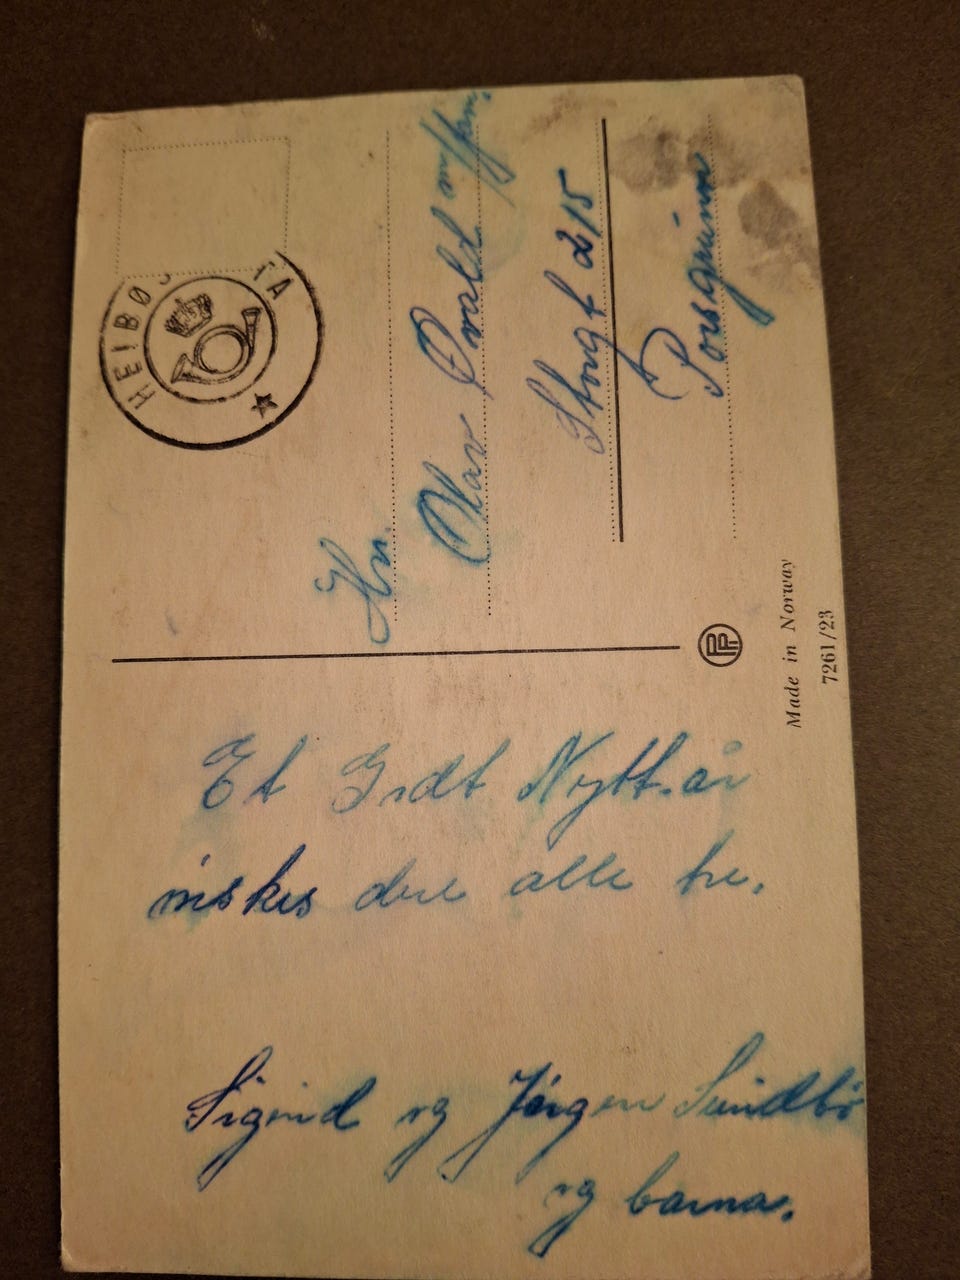 Et Godt Nytt-år
ønskes dere alle tre.
Sigrid og Jørgen Sundbø
og barna.
HEIBØ
TA
Hr.
Olav Kvald m/fam.
Storgt 215
Porsgrunn
PP
Made in Norway
7261/23